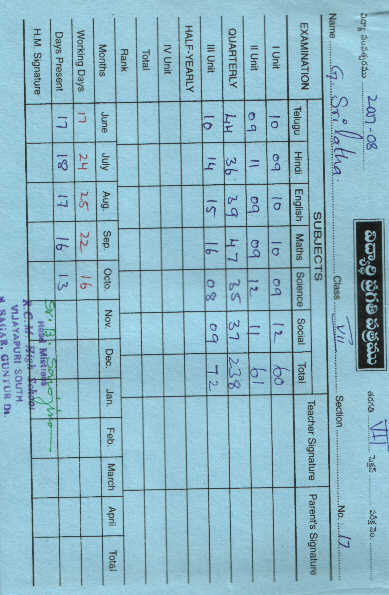 విద్యా సంవత్సరము 2007-08 విద్యార్థి ప్రగతి పత్రము తరగతి VII సెక్షన్
Name G. Srilatha. Class VII Section No. 17
EXAMINATION SUBJECTS Teacher Signature Parent's Signature
Telugu Hindi English Maths Science Social Total
I Unit 10 09 10 10 09 12 60
II Unit 09 11 09 09 12 11 61
QUARTERLY 44 36 39 47 35 37 238
III Unit 10 14 15 16 08 09 72
HALF-YEARLY
IV Unit
Total
Rank
Months June July Aug. Sep. Octo. Nov. Dec. Jan. Feb. March April Total
Working Days 17 24 25 22 16
Days Present 17 18 17 16 13
H.M. Signature
Head Mistress
R.C.M. High School
VIJAYAPURI SOUTH
N. SAGAR, GUNTUR Dt.